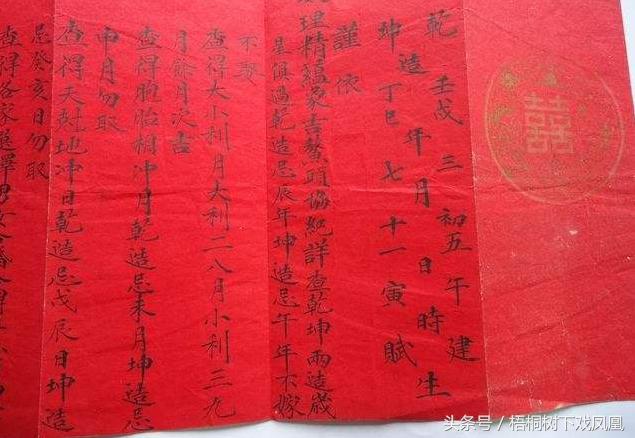 囍
乾壬戌三初五午建
造年月日時生
坤丁巳七十一寅賦
謹依
理精蘊象吉鰲頭協紀詳查乾坤兩造歲
星俱過乾造忌辰年坤造忌午年不嫁
不娶
查得大小利月大利二八月小利三九
月餘月次吉
查得胞胎相冲月乾造忌未月坤造忌
申月勿取
查得天尅地冲日乾造忌戊辰日坤造
忌癸亥日勿取
查得各家選擇男女合婚
头条号/梧桐树下戏凤凰